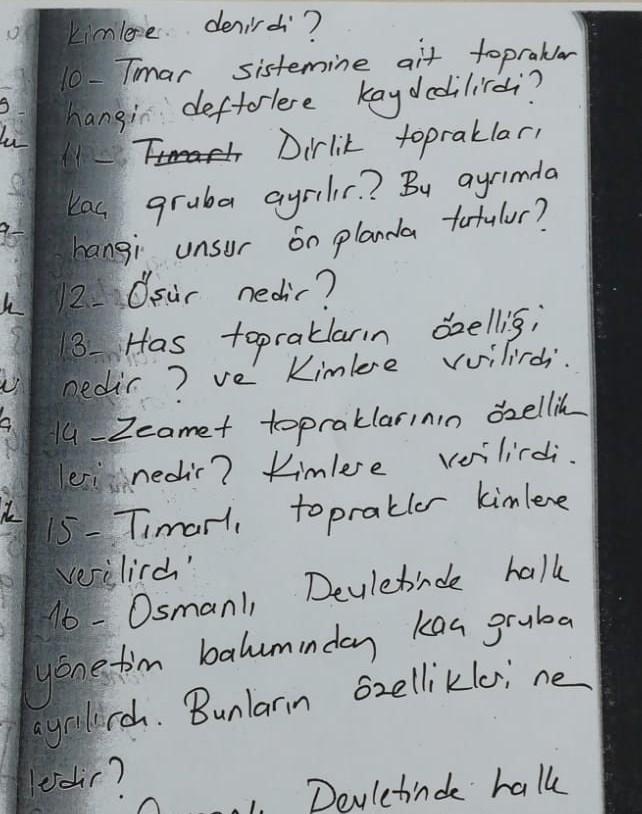 kimlere denirdi?
10- Tımar sistemine ait topraklar
hangi defterlere kaydedilirdi?
11- Tımarlı Dirlik toprakları
kaç gruba ayrılır.? Bu ayrımda
hangi unsur ön planda tutulur?
12- Öşür nedir?
13- Has toprakların özelliği
nedir? ve Kimlere verilirdi.
14- Zeamet topraklarının özellik
leri nedir? Kimlere verilirdi.
15- Tımarlı topraklar kimlere
verilirdi
16- Osmanlı Devletinde halk
yönetim bakımından kaç gruba
ayrılırdı. Bunların özellikleri ne
lerdir?
Devletinde halk